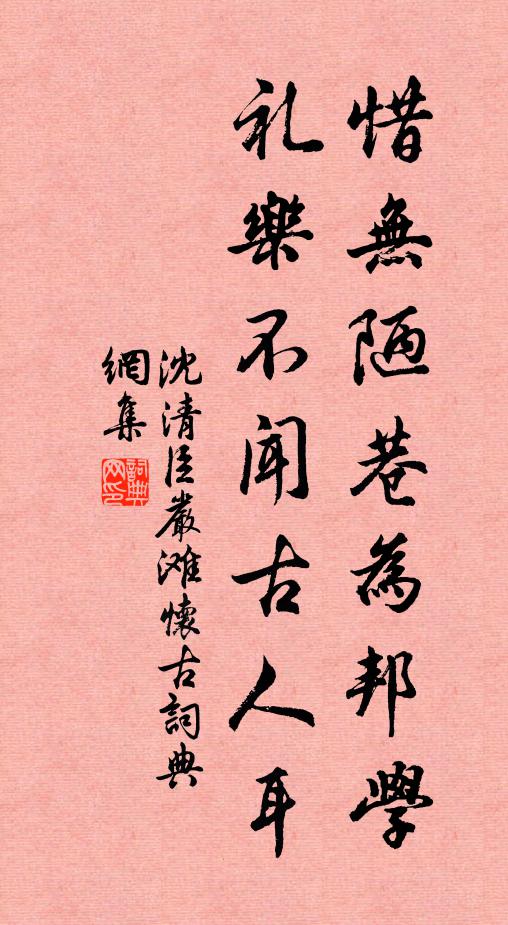 惜無陋巷為邦學
礼樂不聞古人耳
沈清臣嚴滩懷古詞典
網集
詞典网印